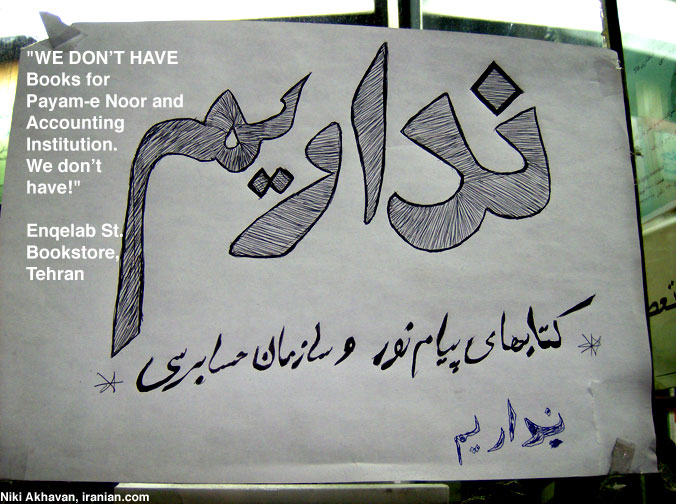 "WE DON'T HAVE
Books for
Payam-e Noor and
Accounting
Institution.
We don't
have!"
Enqelab St.
Bookstore,
Tehran
نداریم
* کتابهای پیام نور و سازمان حسابرسی *
نداریم
Niki Akhavan, iranian.com